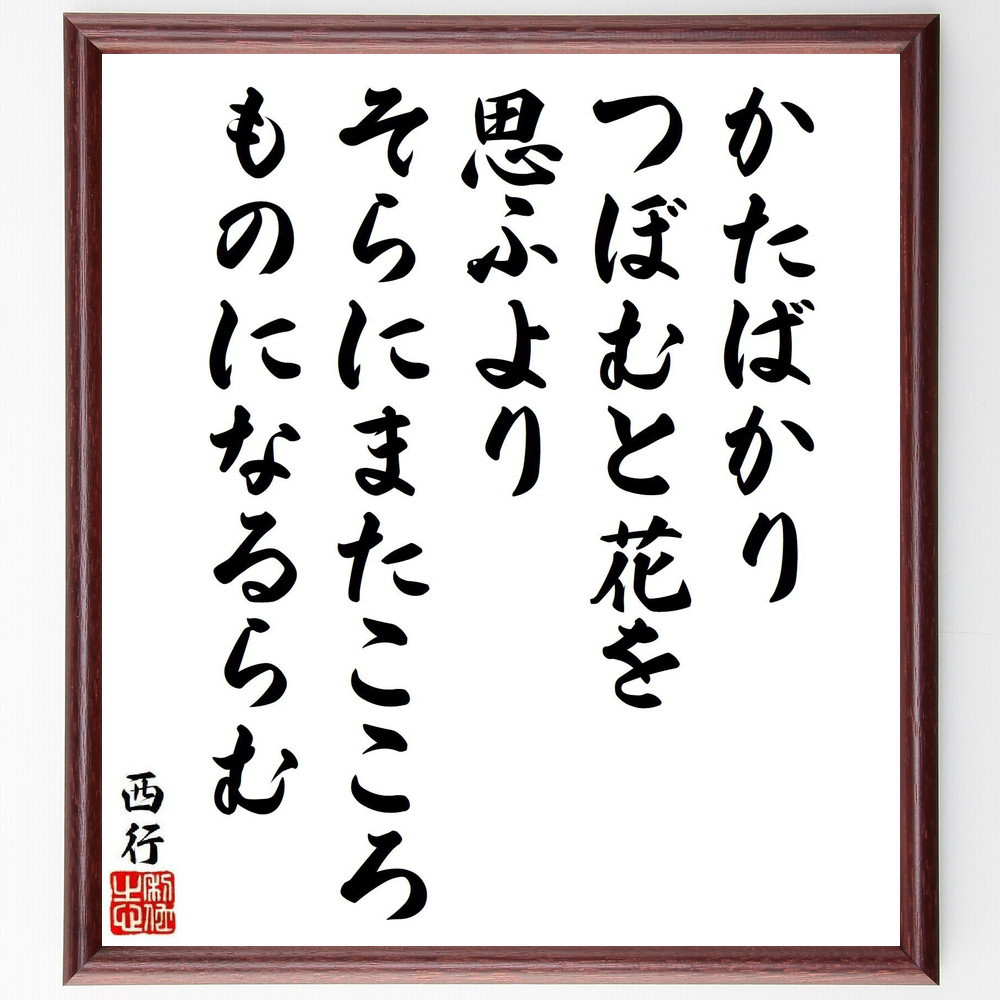 かたばかり
つぼむと花を
思ふより
そらにまたこころ
ものになるらむ
西行